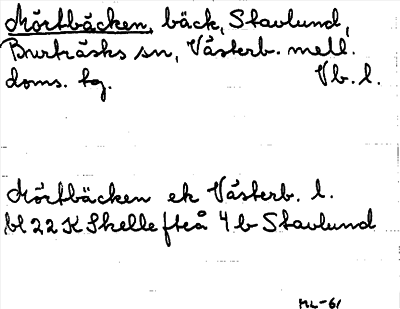 Mörtbäcken, bäck, Stavlund,
Burträsks sn, Västerb. mell.
doms. tg. Vb. l.
Mörtbäcken ek Västerb. l.
bl 22 K Skellefteå 4 b Stavlund
ML-61